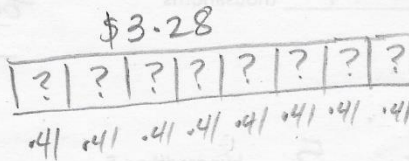 $3.28
? ? ? ? ? ? ? ?
.41 .41 .41 .41 .41 .41 .41 .41